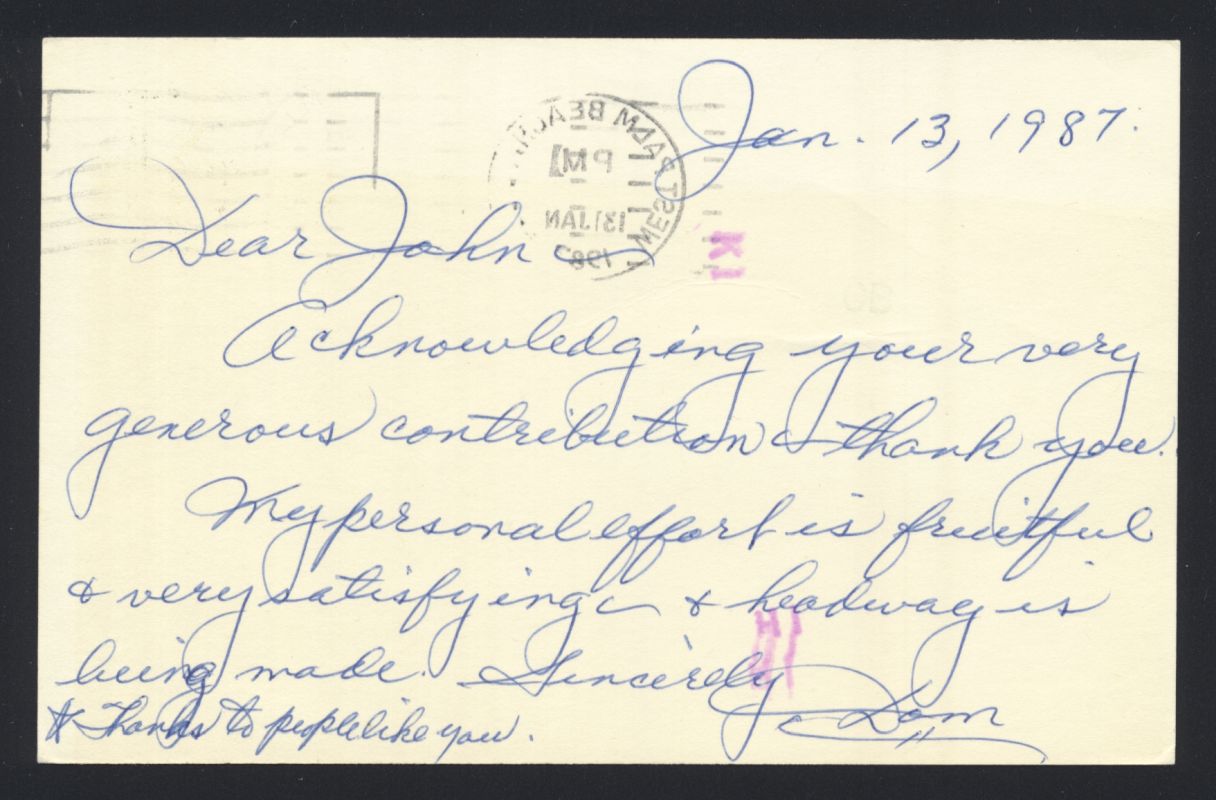 Jan. 13, 1987.
Dear John
Acknowledging your very
generous contribution & thank you.
My personal effort is fruitful
& very satisfying & headway is
being made. Sincerely
Dom
& Thanks to people like you.
WEST PALM BEACH
PM
13 JAN
1987